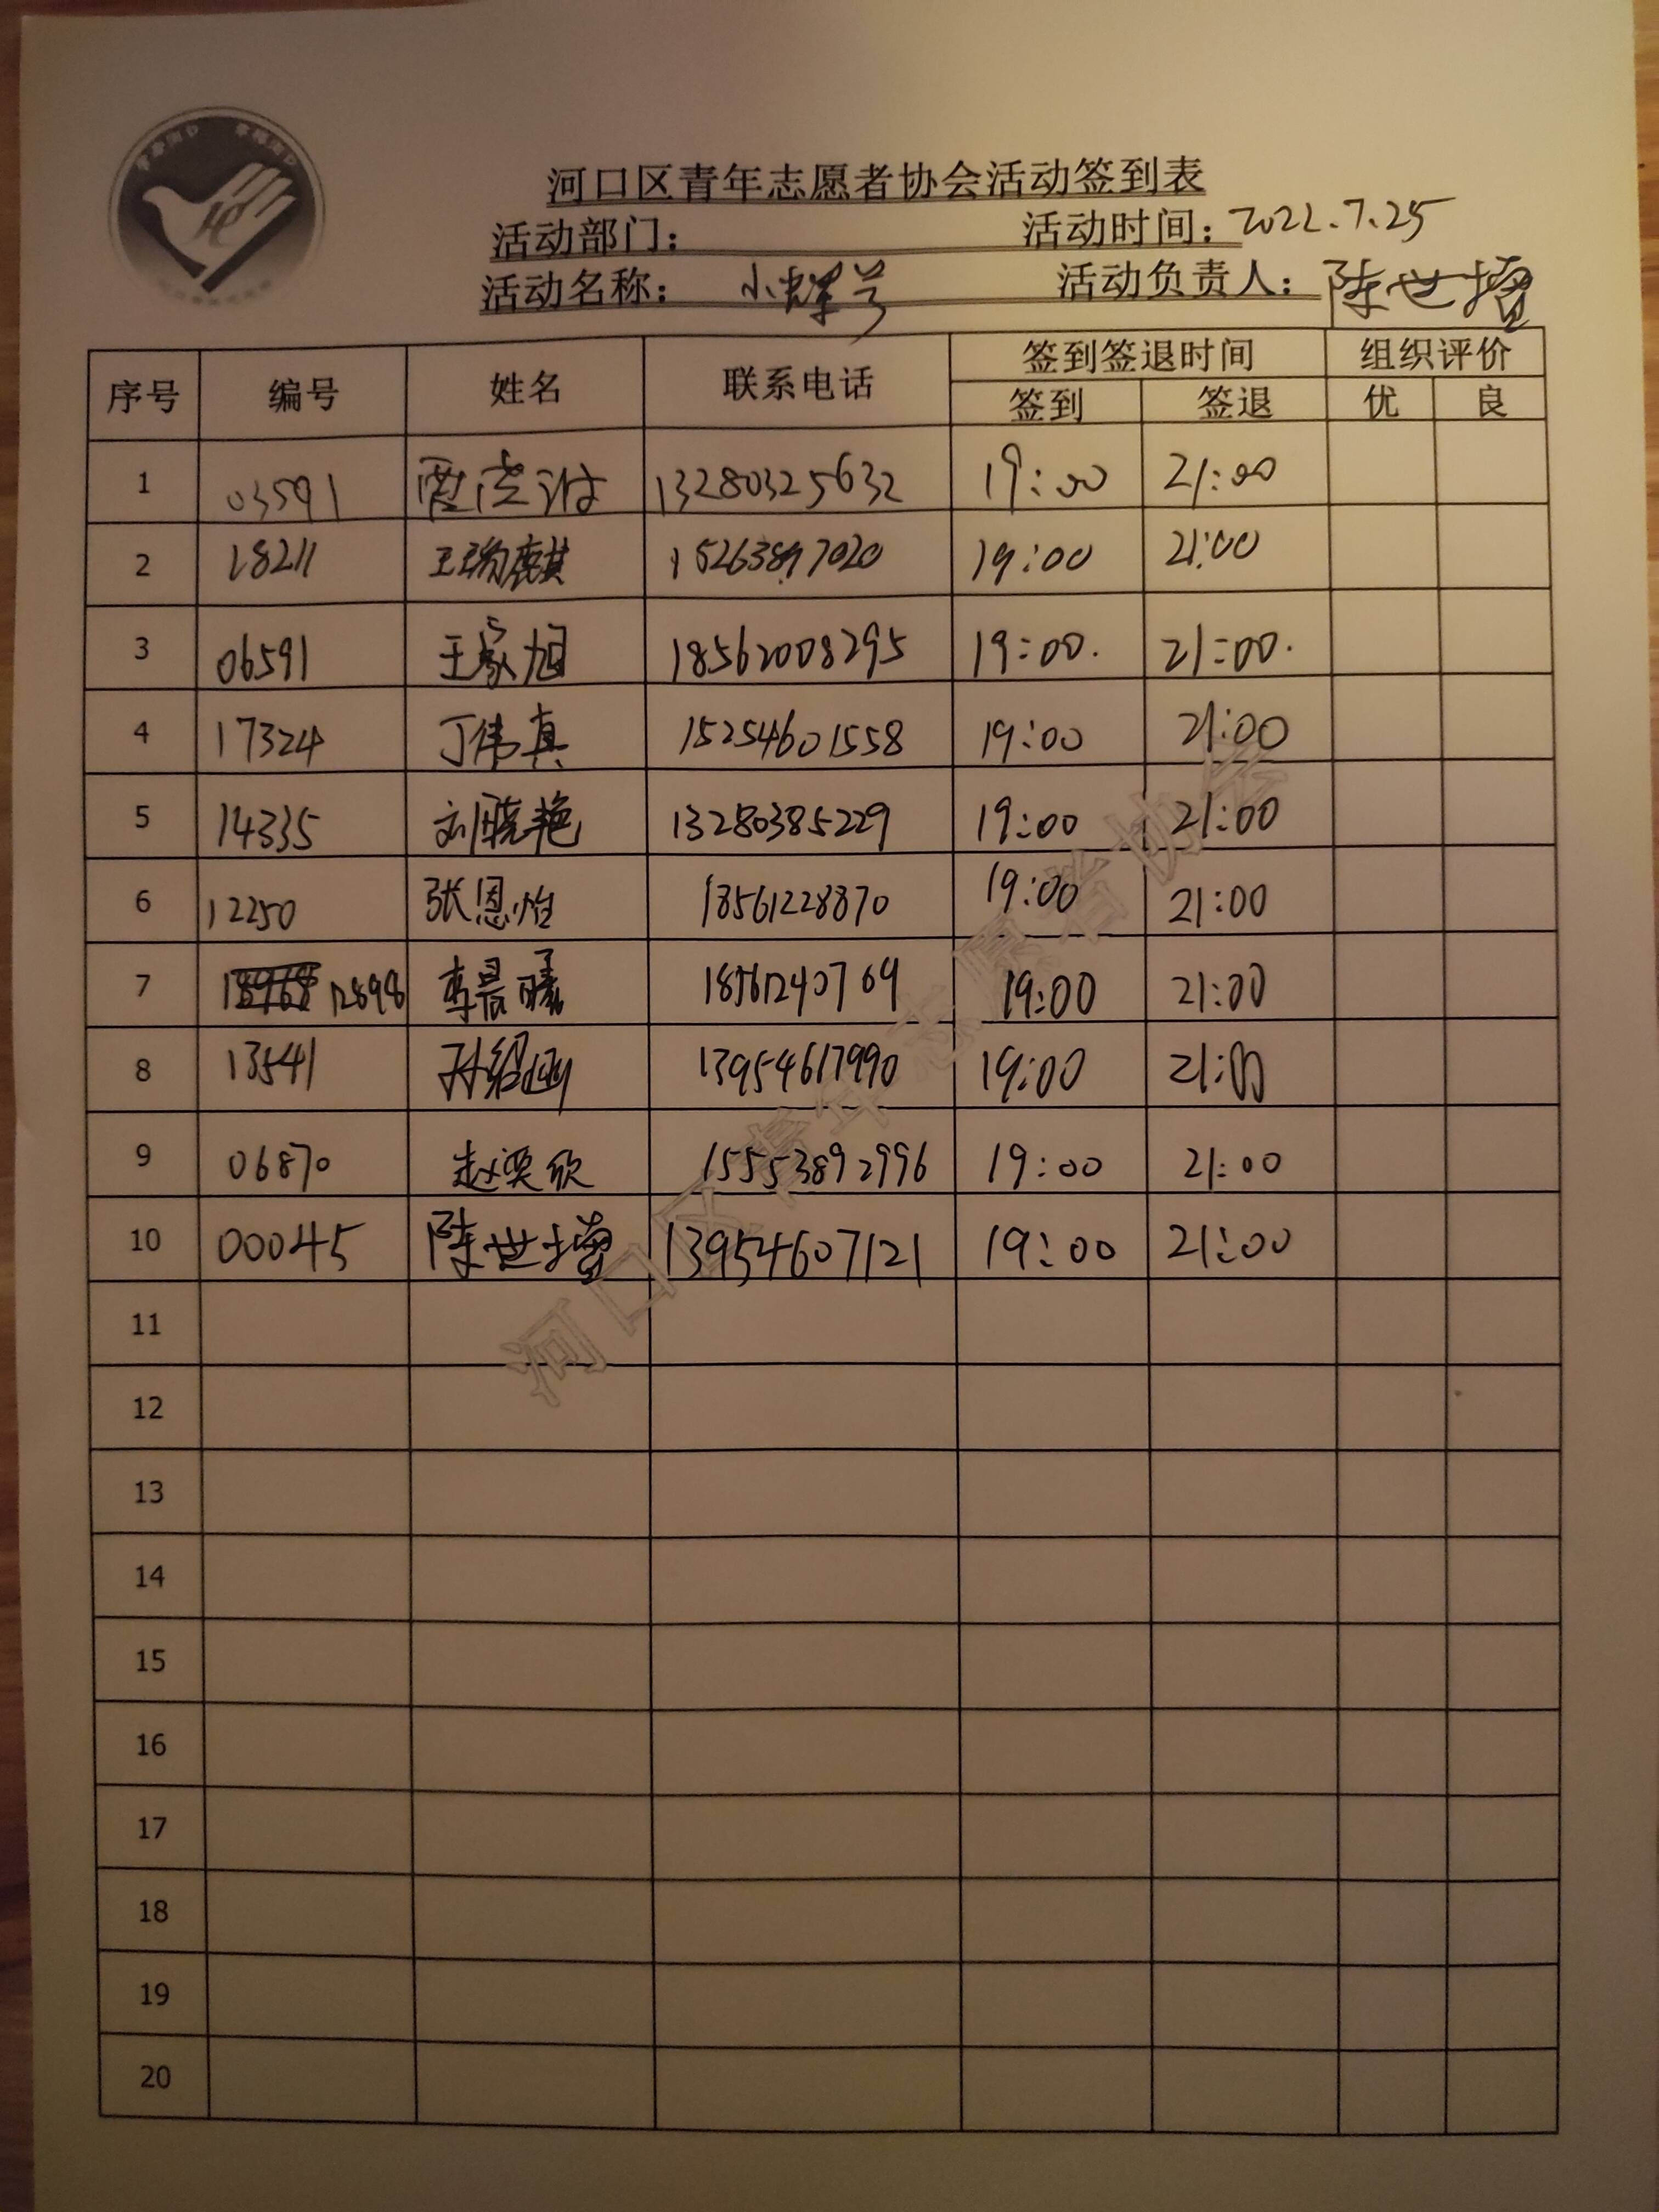 河口区青年志愿者协会活动签到表
活动部门： 活动时间：2022.7.25
活动名称： 小蝉号 活动负责人：陈世增
序号 编号 姓名 联系电话 签到签退时间 组织评价
签到 签退 优 良
1 03591 13280325632 19:00 21:00
2 18211 王瑞麒 15263897020 19:00 21:00
3 06591 王家旭 18562008295 19:00. 21:00.
4 17324 丁伟真 15254601558 19:00 21:00
5 14335 刘晓艳 13280385229 19:00 21:00
6 12250 张恩怡 18561228870 19:00 21:00
7 12898 李晨曦 18561240769 19:00 21:00
8 13541 13954617990 19:00 21:00
9 06870 赵奕欣 15553892996 19:00 21:00
10 00045 陈世增 13954607121 19:00 21:00
11
12
13
14
15
16
17
18
19
20
河口区青年志愿者协会